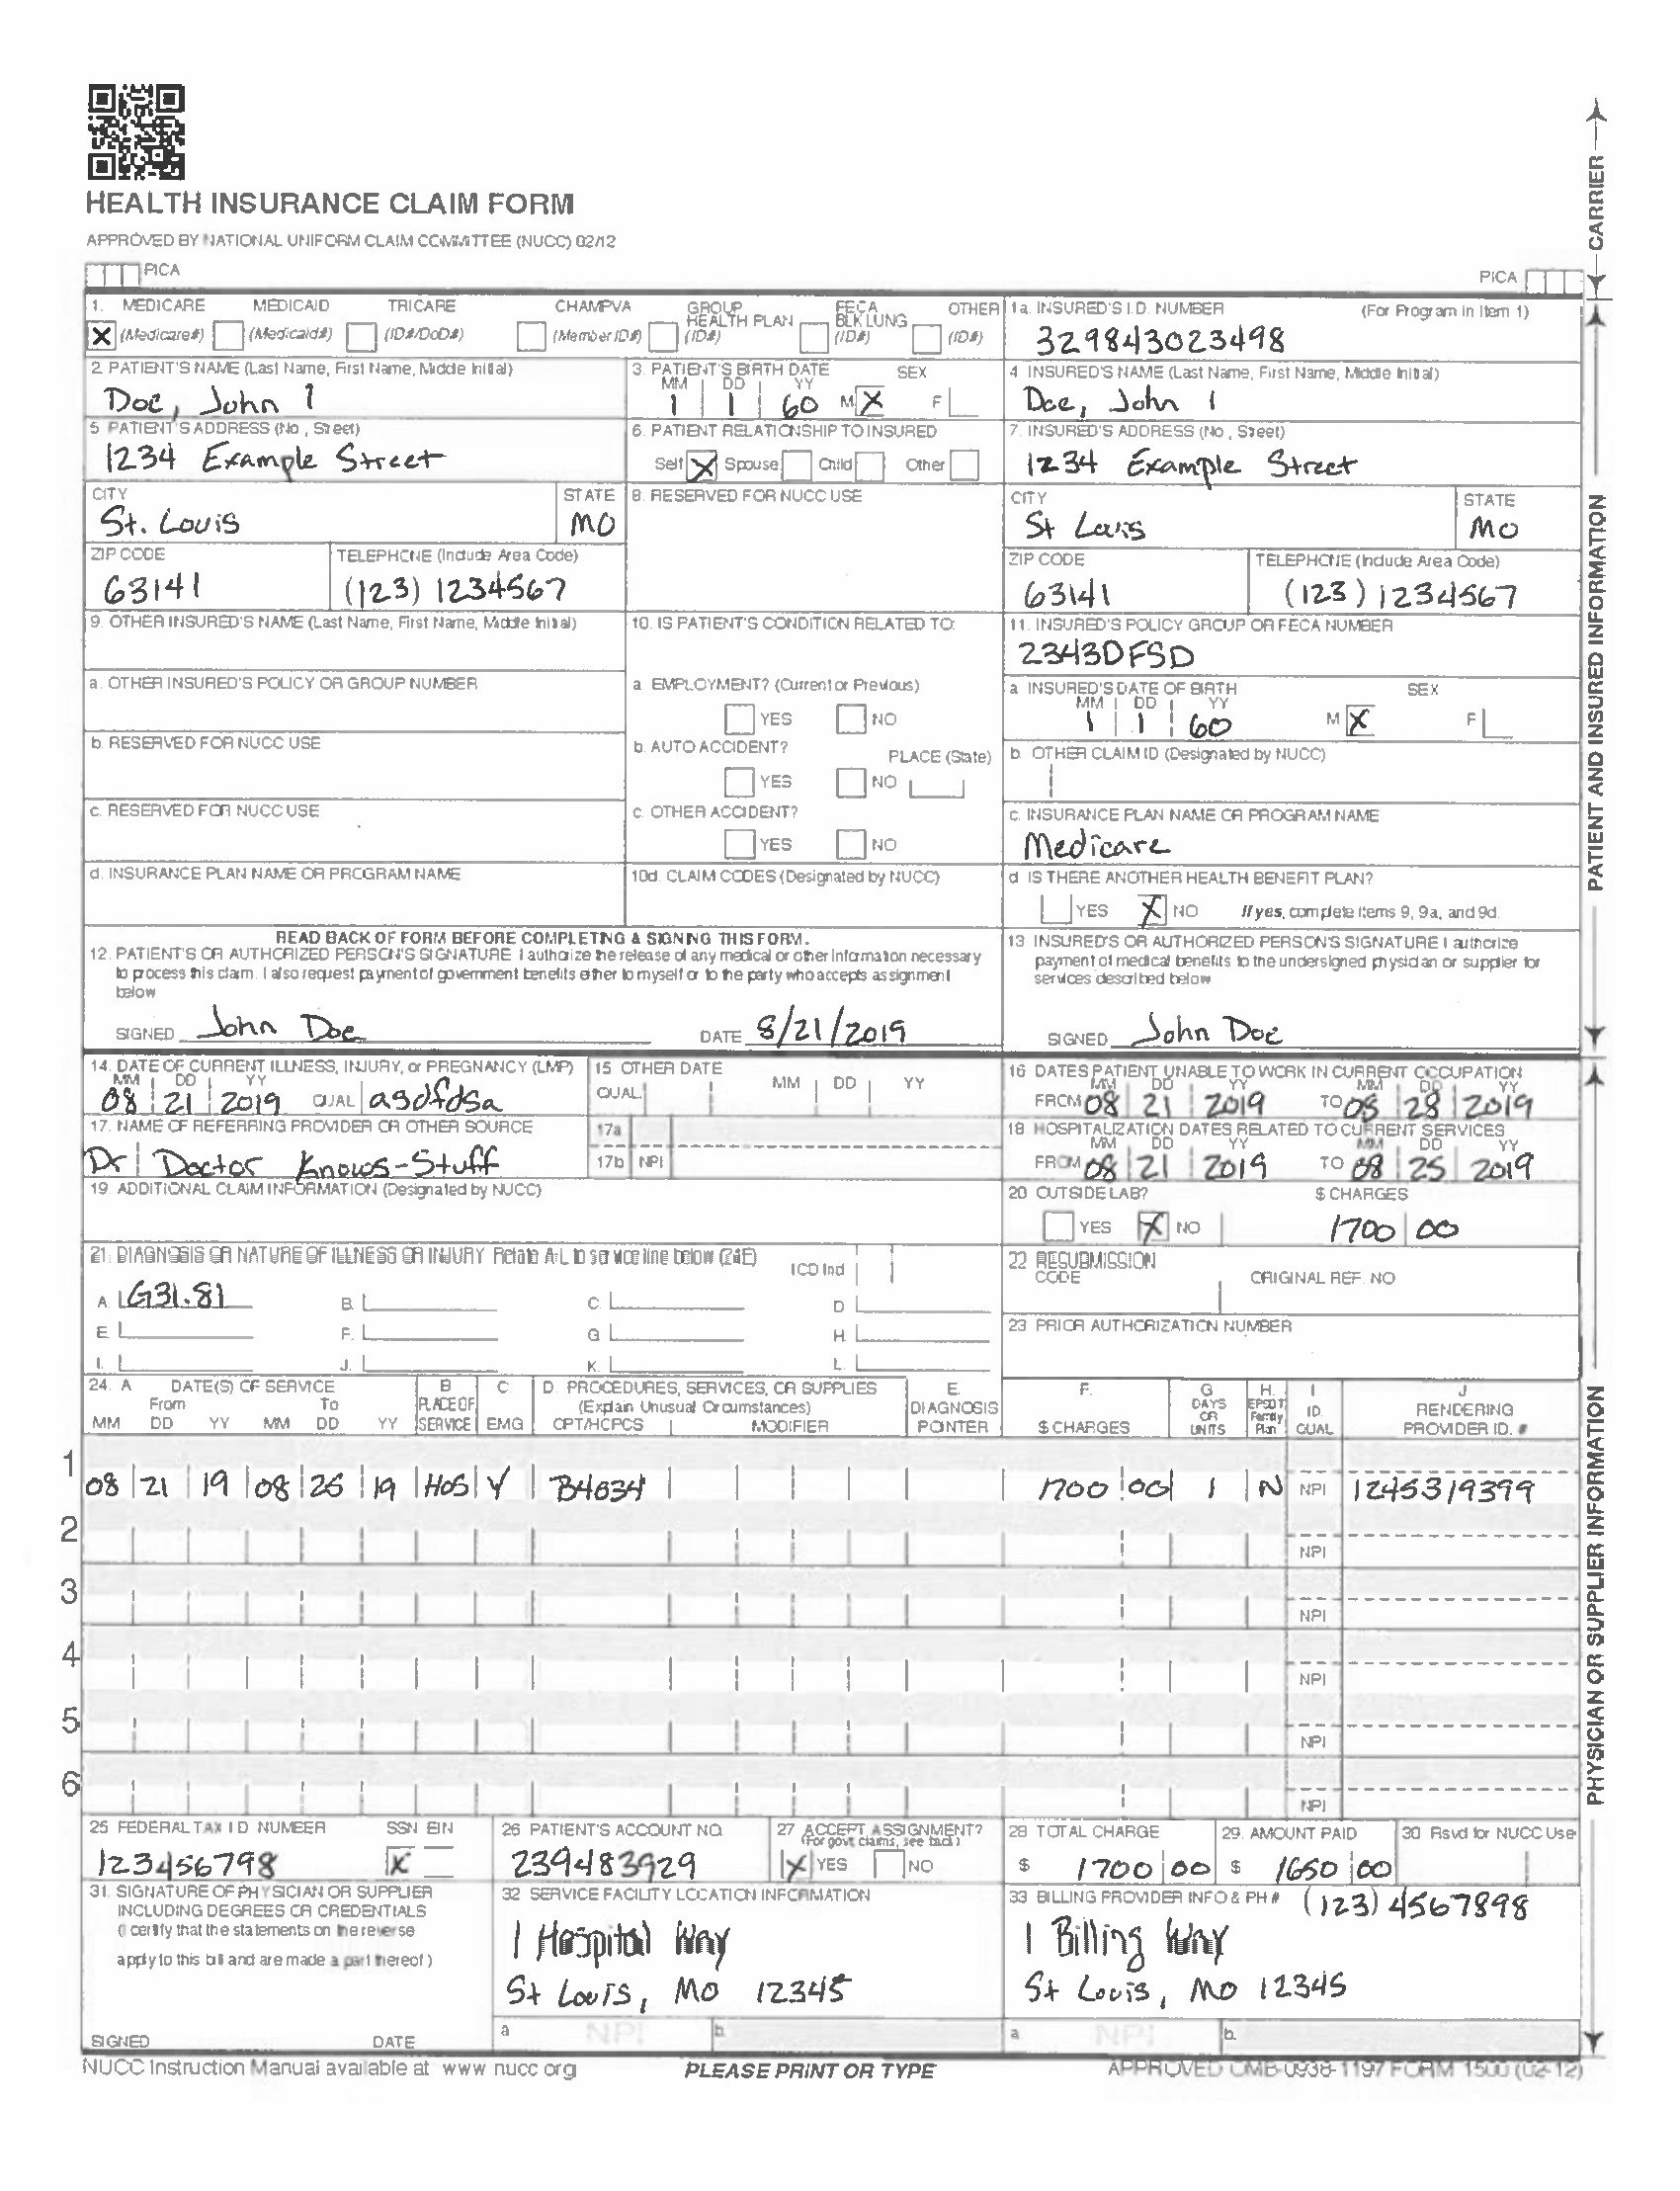 HEALTH INSURANCE CLAIM FORM
APPROVED BY NATIONAL UNIFORM CLAIM COMMITTEE (NUCC) 02/12
PICA PICA
CARRIER
1. MEDICARE MEDICAID TRICARE CHAMPVA GROUP HEALTH PLAN FECA BLK LUNG OTHER
X (Medicare#) (Medicaid#) (ID#/DoD#) (Member ID#) (ID#) (ID#) (ID#)
1a. INSURED'S I.D. NUMBER (For Program in Item 1)
329843023498
2. PATIENT'S NAME (Last Name, First Name, Middle Initial)
Doe, John 1
3. PATIENT'S BIRTH DATE SEX
MM DD YY
1 1 60 M X F
4. INSURED'S NAME (Last Name, First Name, Middle Initial)
Doe, John 1
5. PATIENT'S ADDRESS (No., Street)
1234 Example Street
6. PATIENT RELATIONSHIP TO INSURED
Self X Spouse Child Other
7. INSURED'S ADDRESS (No., Street)
1234 Example Street
CITY STATE
St. Louis MO
8. RESERVED FOR NUCC USE
CITY STATE
St Louis MO
ZIP CODE TELEPHONE (Include Area Code)
63141 (123) 1234567
ZIP CODE TELEPHONE (Include Area Code)
63141 (123) 1234567
9. OTHER INSURED'S NAME (Last Name, First Name, Middle Initial)
10. IS PATIENT'S CONDITION RELATED TO:
11. INSURED'S POLICY GROUP OR FECA NUMBER
2343DFSD
a. OTHER INSURED'S POLICY OR GROUP NUMBER
a. EMPLOYMENT? (Current or Previous)
YES NO
a. INSURED'S DATE OF BIRTH SEX
MM DD YY
1 1 60 M X F
b. RESERVED FOR NUCC USE
b. AUTO ACCIDENT? PLACE (State)
YES NO
b. OTHER CLAIM ID (Designated by NUCC)
c. RESERVED FOR NUCC USE
c. OTHER ACCIDENT?
YES NO
c. INSURANCE PLAN NAME OR PROGRAM NAME
Medicare
d. INSURANCE PLAN NAME OR PROGRAM NAME
10d. CLAIM CODES (Designated by NUCC)
d. IS THERE ANOTHER HEALTH BENEFIT PLAN?
YES X NO If yes, complete items 9, 9a, and 9d.
READ BACK OF FORM BEFORE COMPLETING & SIGNING THIS FORM.
12. PATIENT'S OR AUTHORIZED PERSON'S SIGNATURE I authorize the release of any medical or other information necessary
to process this claim. I also request payment of government benefits either to myself or to the party who accepts assignment
below
SIGNED John Doe DATE 8/21/2019
13 INSURED'S OR AUTHORIZED PERSON'S SIGNATURE I authorize
payment of medical benefits to the undersigned physician or supplier for
services described below
SIGNED John Doe
PATIENT AND INSURED INFORMATION
14. DATE OF CURRENT ILLNESS, INJURY, or PREGNANCY (LMP)
MM DD YY
08 21 2019 QUAL asdfdsa
15 OTHER DATE
QUAL MM DD YY
16 DATES PATIENT UNABLE TO WORK IN CURRENT OCCUPATION
MM DD YY MM DD YY
FROM 08 21 2019 TO 08 28 2019
17. NAME OF REFERRING PROVIDER OR OTHER SOURCE
Dr Doctor Knows-Stuff
17a
17b NPI
18 HOSPITALIZATION DATES RELATED TO CURRENT SERVICES
MM DD YY MM DD YY
FROM 08 21 2019 TO 08 25 2019
19. ADDITIONAL CLAIM INFORMATION (Designated by NUCC)
20 OUTSIDE LAB? $ CHARGES
YES X NO 1700 00
21. DIAGNOSIS OR NATURE OF ILLNESS OR INJURY Relate A-L to service line below (24E) ICD Ind
A. G31.81 B. C. D.
E. F. G. H.
I. J. K. L.
22 RESUBMISSION
CODE ORIGINAL REF. NO
23 PRIOR AUTHORIZATION NUMBER
24. A DATE(S) OF SERVICE B C. D. PROCEDURES, SERVICES, OR SUPPLIES E. F. G H. I J
From To PLACE OF (Explain Unusual Circumstances) DIAGNOSIS DAYS OR UNITS EPSDT Family Plan ID. RENDERING
MM DD YY MM DD YY SERVICE EMG CPT/HCPCS MODIFIER POINTER $ CHARGES QUAL PROVIDER ID. #
1
08 21 19 08 25 19 HOS Y B4034 1700 00 1 N NPI 1245319399
2 NPI
3 NPI
4 NPI
5 NPI
6 NPI
25 FEDERAL TAX I D NUMBER SSN EIN
123456798 X
26 PATIENT'S ACCOUNT NO.
239483929
27 ACCEPT ASSIGNMENT?
(For govt claims, see back)
X YES NO
28 TOTAL CHARGE
$ 1700 00
29. AMOUNT PAID
$ 1650 00
30 Rsvd for NUCC Use
31. SIGNATURE OF PHYSICIAN OR SUPPLIER
INCLUDING DEGREES OR CREDENTIALS
(I certify that the statements on the reverse
apply to this bill and are made a part thereof)
SIGNED DATE
32 SERVICE FACILITY LOCATION INFORMATION
1 Hospital Way
St Louis, MO 12345
a NPI b.
33 BILLING PROVIDER INFO & PH # (123) 4567898
1 Billing Way
St Louis, MO 12345
a NPI b.
PHYSICIAN OR SUPPLIER INFORMATION
NUCC Instruction Manual available at www nucc org PLEASE PRINT OR TYPE APPROVED OMB-0938-1197 FORM 1500 (02-12)